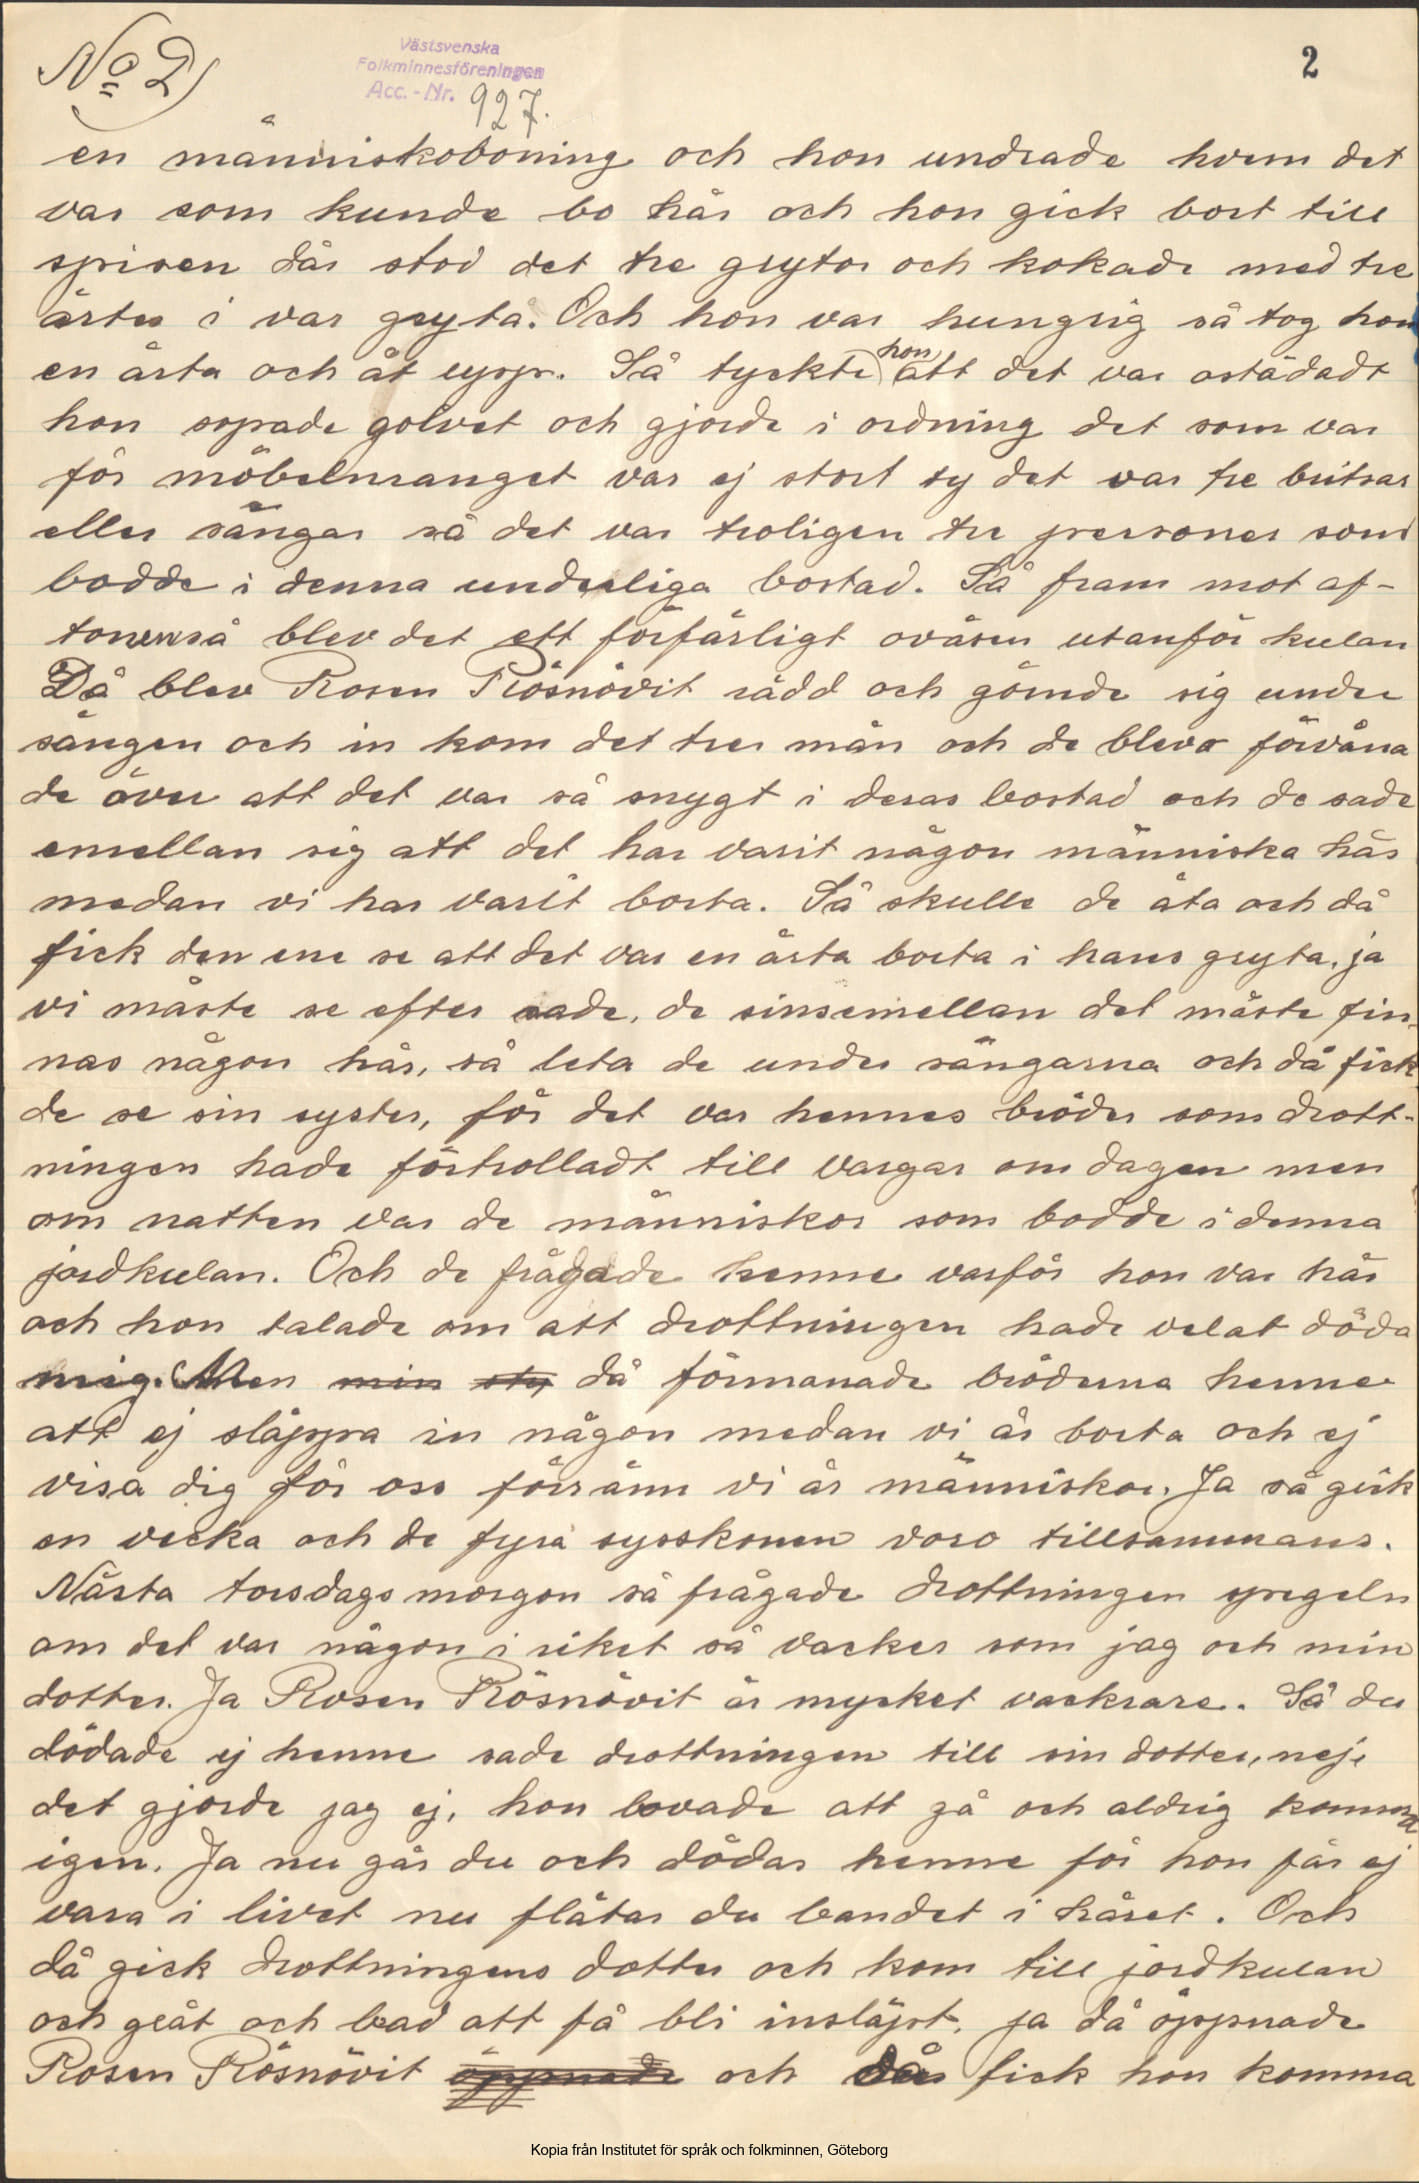 No 2)
Västsvenska
Folkminnesföreningen
Acc.-Nr. 927.
2
en människoboning och hon undrade hvem det
var som kunde bo här och hon gick bort till
spisen där stod det tre grytor och kokade med tre
ärter i var gryta. Och hon var hungrig så tog hon
en ärta och åt upp. Så tyckte hon att det var ostädadt
hon sopade golvet och gjorde i ordning det som var
för möbelmanget var ej stort ty det var tre britsar
eller sängar så det var troligen tre personer som
bodde i denna underliga bostad. Så fram mot af-
tonen så blev det ett förfärligt oväsen utanför kulan
Då blev Rosen Rösnövit rädd och gömde sig under
sängen och in kom det tree män och de blevo förvåna
de över att det var så snygt i deras bostad och de sade
emellan sig att det har varit någon människa här
medan vi har varit borta. Så skulle de äta och då
fick den ene se att det var en ärta borta i hans gryta, ja
vi måste se efter sade, de sinsemellan det måste fin-
nas någon här, så leta de under sängarna och då fick
de se sin syster, för det var hennes bröder som drott-
ningen hade förtrolladt till vargar om dagen men
om natten var de människor som bodde i denna
jordkulan. Och de frågade henne varför hon var här
och hon talade om att drottningen hade velat döda
mig. Men min sty då förmanade bröderna henne
att ej släppa in någon medan vi är borta och ej
visa dig för oss förr änn vi är människor. Ja så gick
en vecka och de fyra sysskonen voro tillsammans.
Nästa torsdags morgon så frågade drottningen spegeln
om det var någon i riket så vacker som jag och min
dotter. Ja Rosen Rösnövit är mycket vackrare. Så du
dödade ej henne sade drottningen till sin dotter, nej,
det gjorde jag ej, hon lovade att gå och aldrig komma
igen. Ja nu går du och dödar henne för hon får ej
vara i livet nu flätar du bandet i håret. Och
då gick drottningens dotter och kom till jordkulan
och grät och bad att få bli insläpt, ja då öppnade
Rosen Rösnövit öppnade och då fick hon komma
Kopia från Institutet för språk och folkminnen, Göteborg